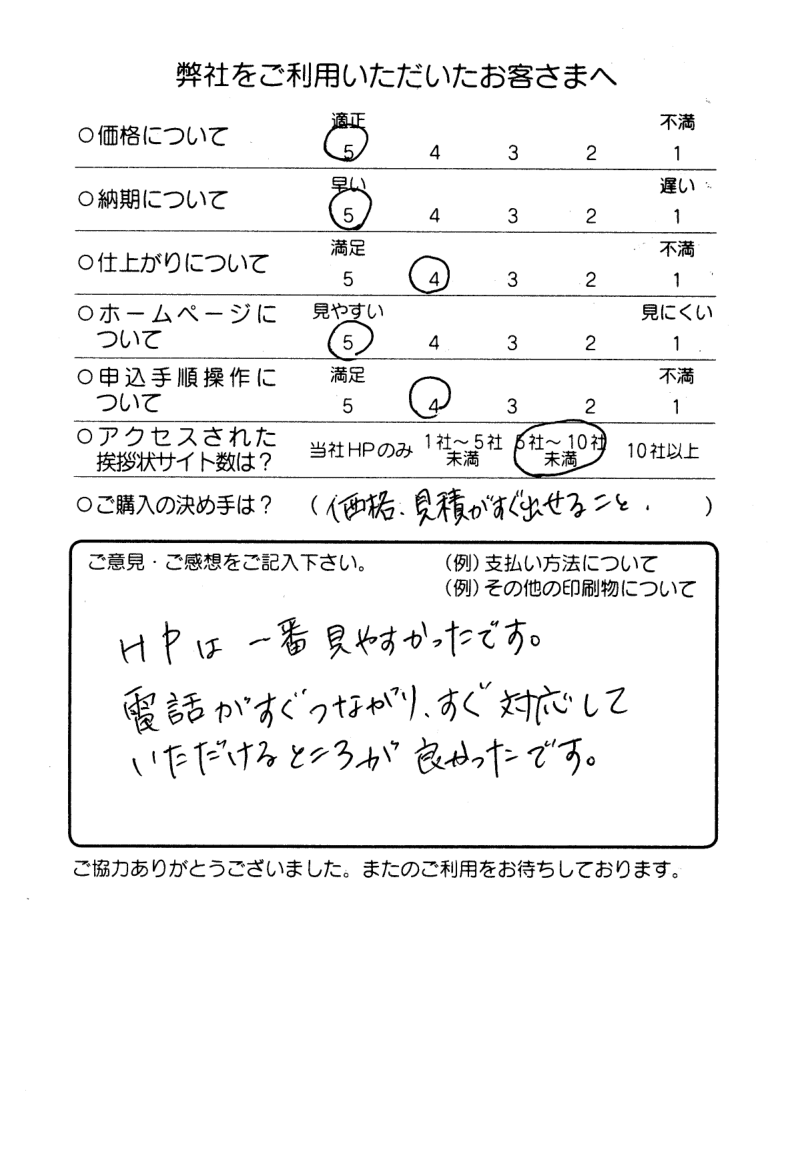 弊社をご利用いただいたお客さまへ
○価格について 適正 不満
5 4 3 2 1
○納期について 早い 遅い
5 4 3 2 1
○仕上がりについて 満足 不満
5 4 3 2 1
○ホームページに 見やすい 見にくい
ついて 5 4 3 2 1
○申込手順操作に 満足 不満
ついて 5 4 3 2 1
○アクセスされた 当社HPのみ 1社～5社 5社～10社 10社以上
挨拶状サイト数は？ 未満 未満
○ご購入の決め手は？ （価格、見積がすぐ出せること.）
ご意見・ご感想をご記入下さい。 （例）支払い方法について
（例）その他の印刷物について
HPは一番見やすかったです。
電話がすぐつながり、すぐ対応して
いただけるところが良かったです。
ご協力ありがとうございました。またのご利用をお待ちしております。